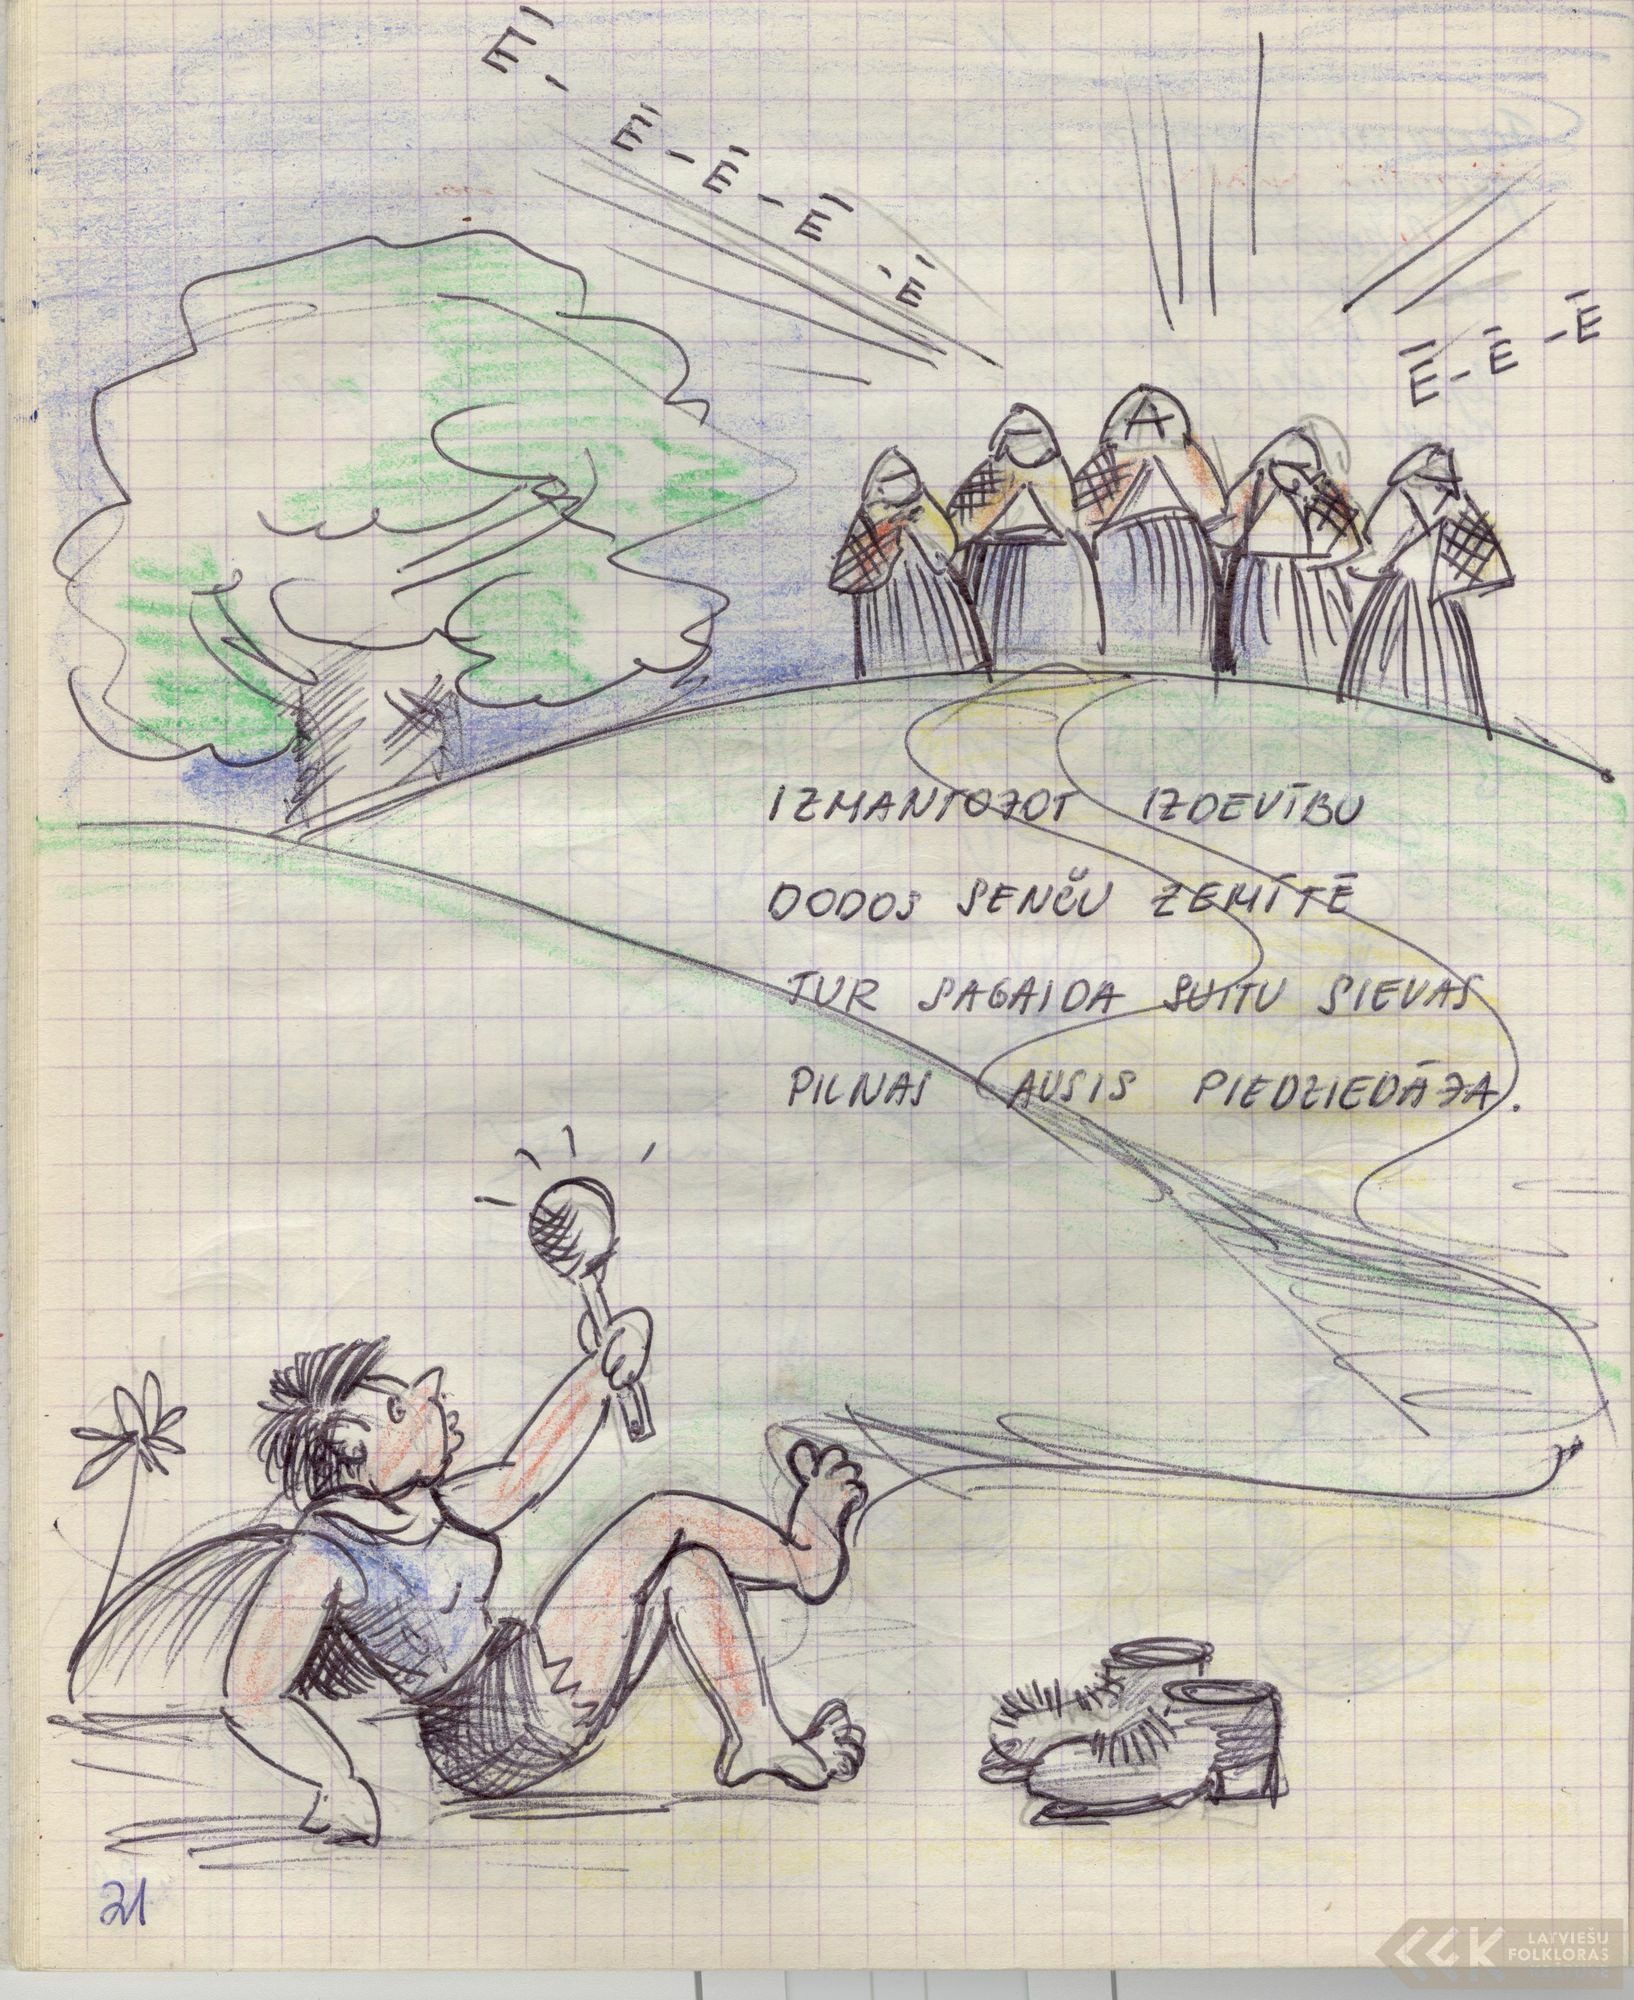 Ē - Ē - Ē - Ē - Ē
Ē - Ē - Ē
A
IZMANTOJOT IZDEVĪBU
DODOS SENČU ZEMĪTĒ
TUR SAGAIDA SUITU SIEVAS
PILNAS AUSIS PIEDZIEDĀJA.
21
LATVIEŠU
FOLKLORAS